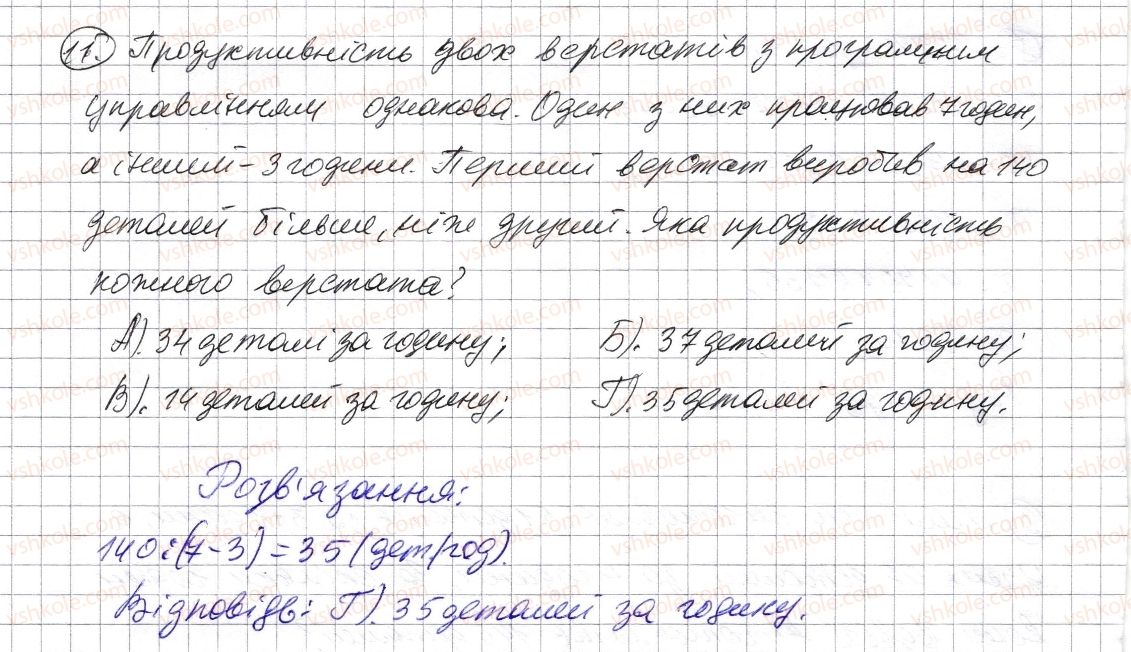 11. Продуктивність двох верстатів з програмним
управлінням однакова. Один з них працював 7 годин,
а інший - 3 години. Перший верстат виробив на 140
деталей більше, ніж другий. Яка продуктивність
кожного верстата?
А). 34 деталі за годину; Б). 37 деталей за годину;
В). 14 деталей за годину; Г). 35 деталей за годину.
Розв'язання:
140:(7-3)=35 (дет/год).
Відповідь: Г). 35 деталей за годину.